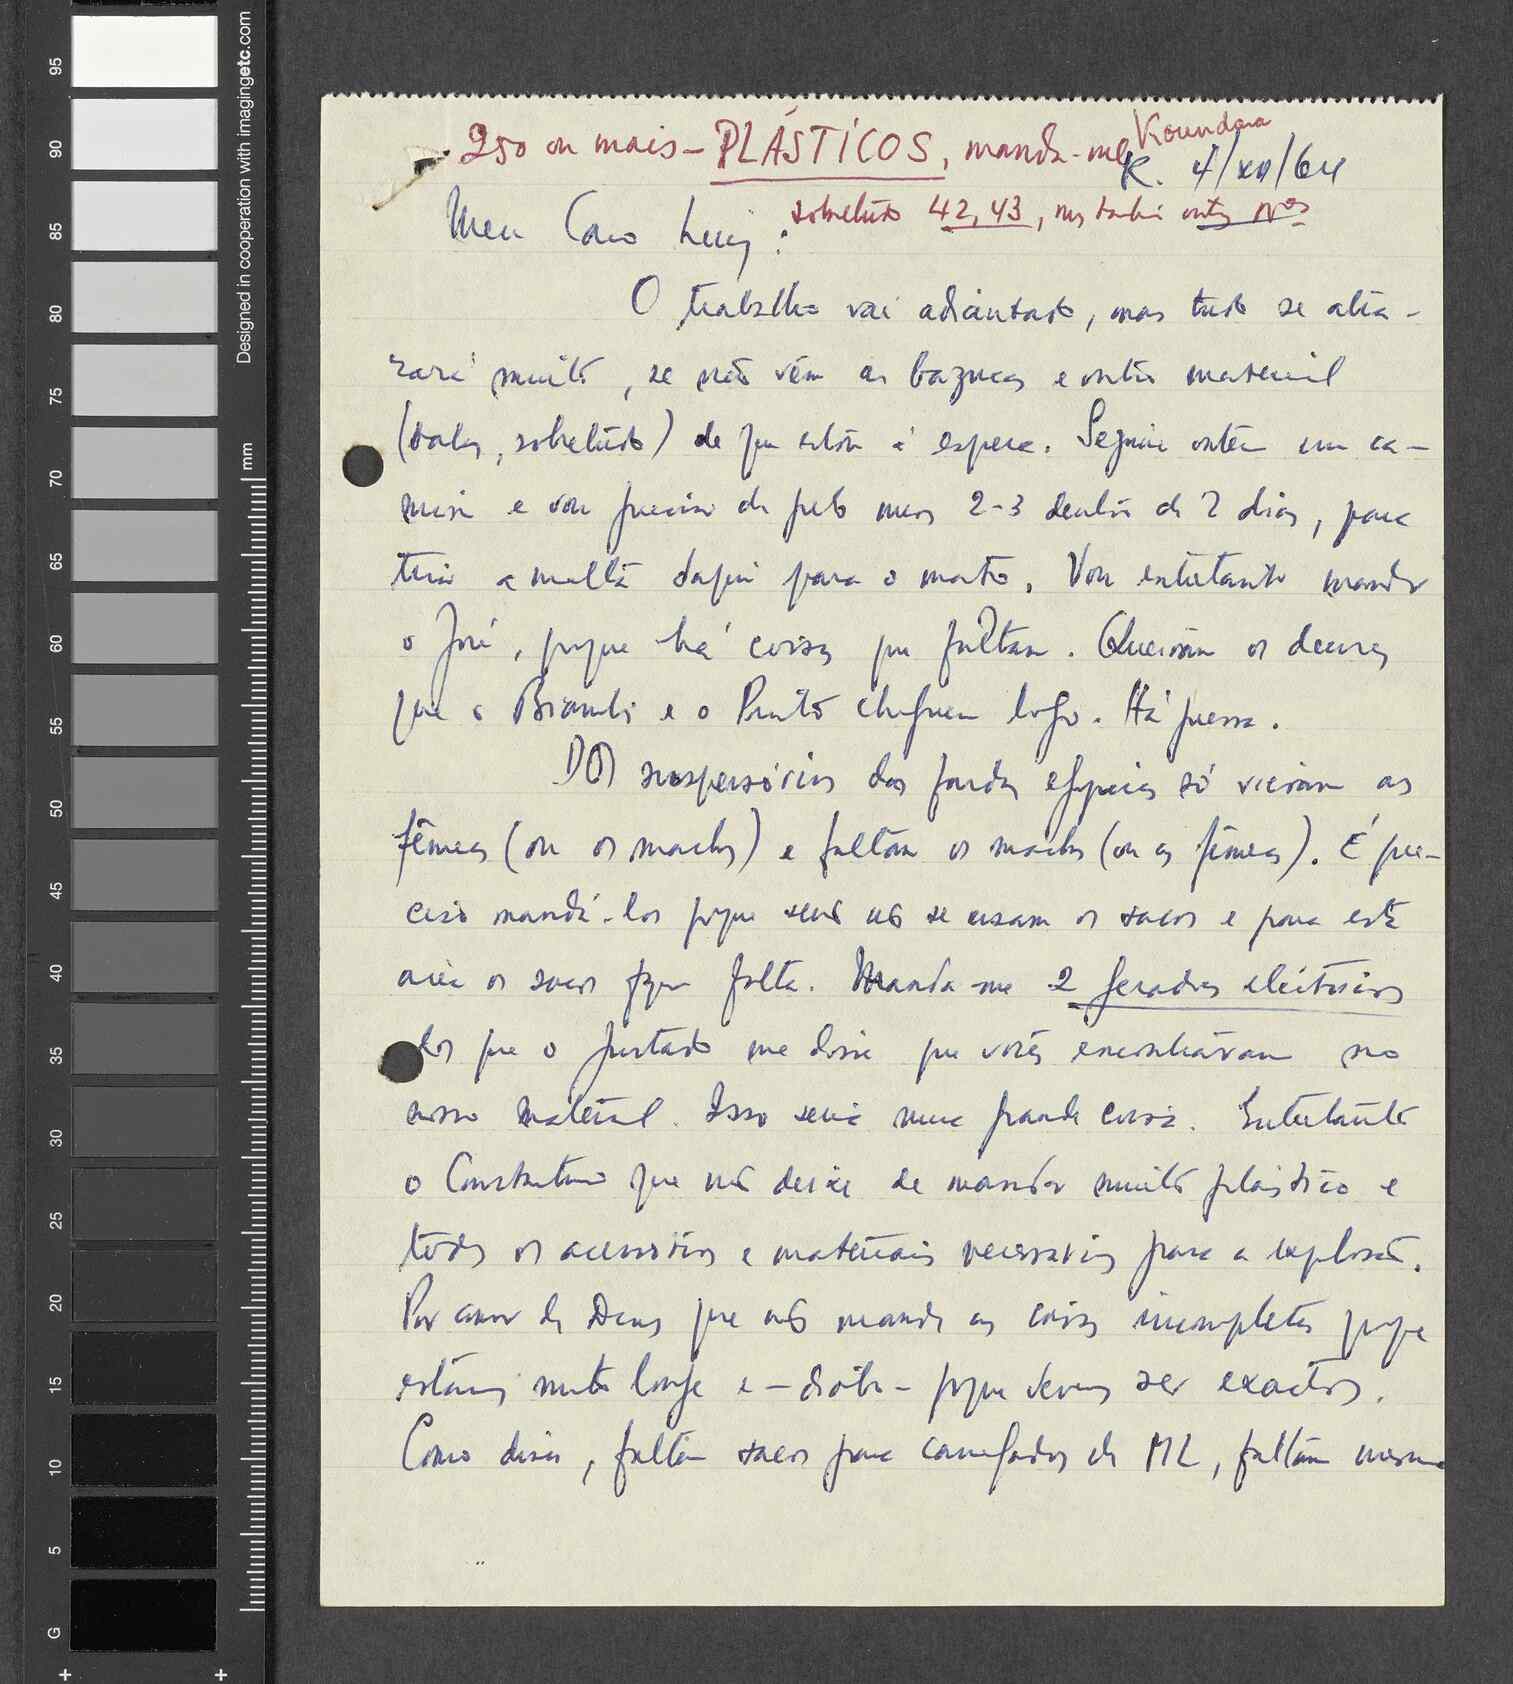 250 ou mais - PLÁSTICOS, manda-me
Koundara
K. 4/XII/64
sobretudo 42, 43, mas também outros Nos
Meu Caro Luiz:
O trabalho vai adiantado, mas tudo se atra-
zará muito, se não vêm as bazucas e outro material
(balas, sobretudo) de que estou à espera. Seguiu ontem um ca-
mião e vou precisar de pelo menos 2-3 dentro de 2 dias, para
tirar a malta daqui para o mato. Vou entretanto mandar
o José, porque há coisas que faltam. Queiram os deuses
que o Bianchi e o Pinto cheguem logo. Há pressa.
DOS suspensórios das fardas egípcias só vieram as
fêmeas (ou os machos) e faltam os machos (ou as fêmeas). É pre-
ciso mandá-los porque sem eles não se usam os sacos e para esta
área os sacos fazem falta. Manda-me 2 geradores eléctricos
dos que o Furtado me disse que vocês encontraram no
nosso material. Isso seria uma grande coisa. Entretanto
o Constantino que não deixe de mandar muito plástico e
todos os acessórios e materiais necessários para a explosão.
Por amor de Deus que não mande as coisas incompletas porque
estamos muito longe e - diabo - porque devemos ser exactos.
Como disse, faltam sacos para carregadores de ML, faltam mesmo
Designed in cooperation with imagingetc.com
mm
95
90
85
80
75
70
65
60
55
50
45
40
35
30
25
20
15
10
5
G